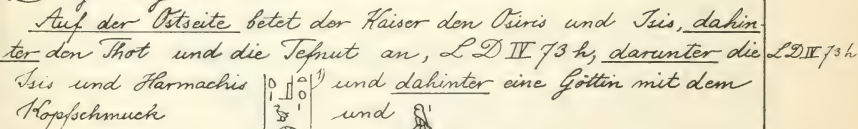 Auf der Ostseite betet der Kaiser den Osiris und Isis, dahin-
ter den Thot und die Tefnut an, L D IV 73 h, darunter die L D IV 73 h
Isis und Harmachis 1) und dahinter eine Göttin mit dem
Kopfschmuck und